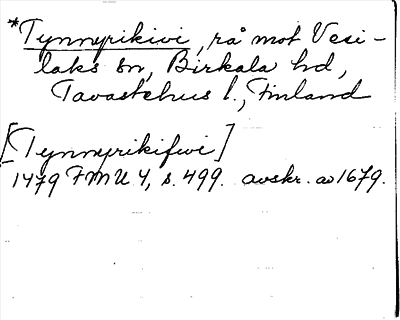 *Tynnyrikivi, rå mot Vesi-
laks sn, Birkala hd,
Tavastehus l., Finland
[Tynnyrikifwi]
1479 FMU 4, s. 499. avskr. av 1679.